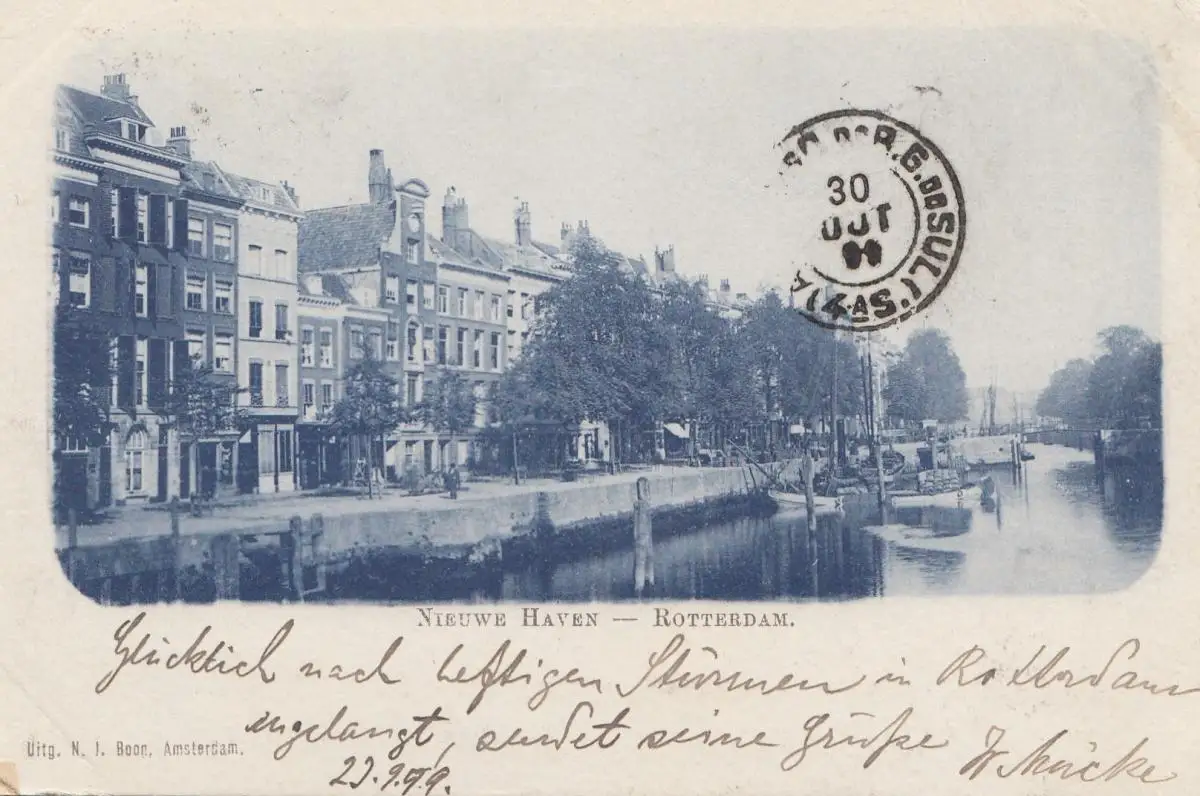 R.G. DO SUL
30
OUT
99
(4ᴬS)
NIEUWE HAVEN — ROTTERDAM.
Glücklich nach heftigen Stürmen in Rotterdam
angelangt, sendet seine Grüße
Uitg. N. J. Boon, Amsterdam.
23.9.99.